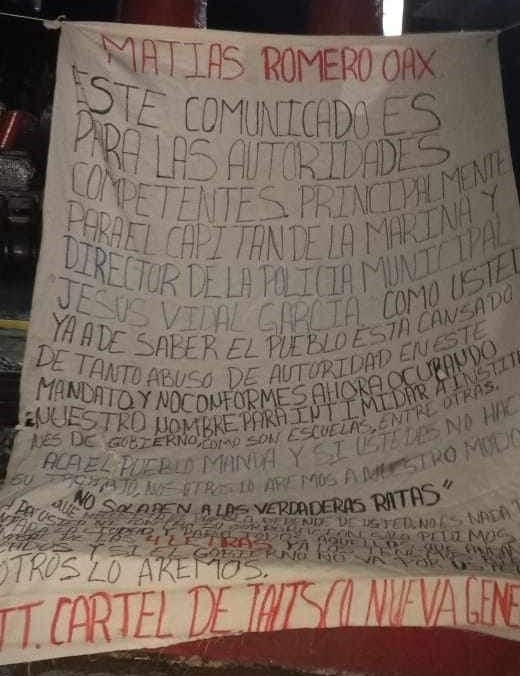 MATIAS ROMERO OAX.
ESTE COMUNICADO ES
PARA LAS AUTORIDADES
COMPETENTES. PRINCIPALMENTE
PARA EL CAPITAN DE LA MARINA Y
DIRECTOR DE LA POLICIA MUNICIPAL
"JESUS VIDAL GARCIA" COMO USTED
YA A DE SABER EL PUEBLO ESTA CANSADO
DE TANTO ABUSO DE AUTORIDAD EN ESTE
MANDATO, Y NO CONFORMES AHORA OCUBANDO
NUESTRO NOMBRE PARA INTIMIDAR A INSTITU
NES DE GOBIERNO, COMO SON ESCUELAS, ENTRE OTRAS.
ACA EL PUEBLO MANDA Y SI USTEDES NO HAC
SU TRABAJO, NOSOTROS LO AREMOS A NUESTRO MODO
QUE "NO SOLAPEN A LAS VERDADERAS RATAS"
DEPENDE DE USTED, NO ES NADA
SOLO PEDIMOS
DE LAS "4 LETRAS" YA
Y SI EL GOBIERNO NO VA POR
OTROS LO AREMOS.
ATT. CARTEL DE JALISCO NUEVA GENE